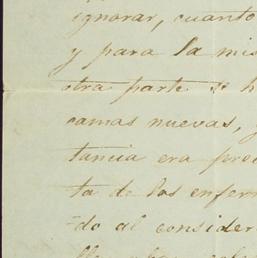 ignorar, cuanto
y para la mis
otra parte se h
camas nuevas, y
tancia era prec
ta de los enferm
do al consider